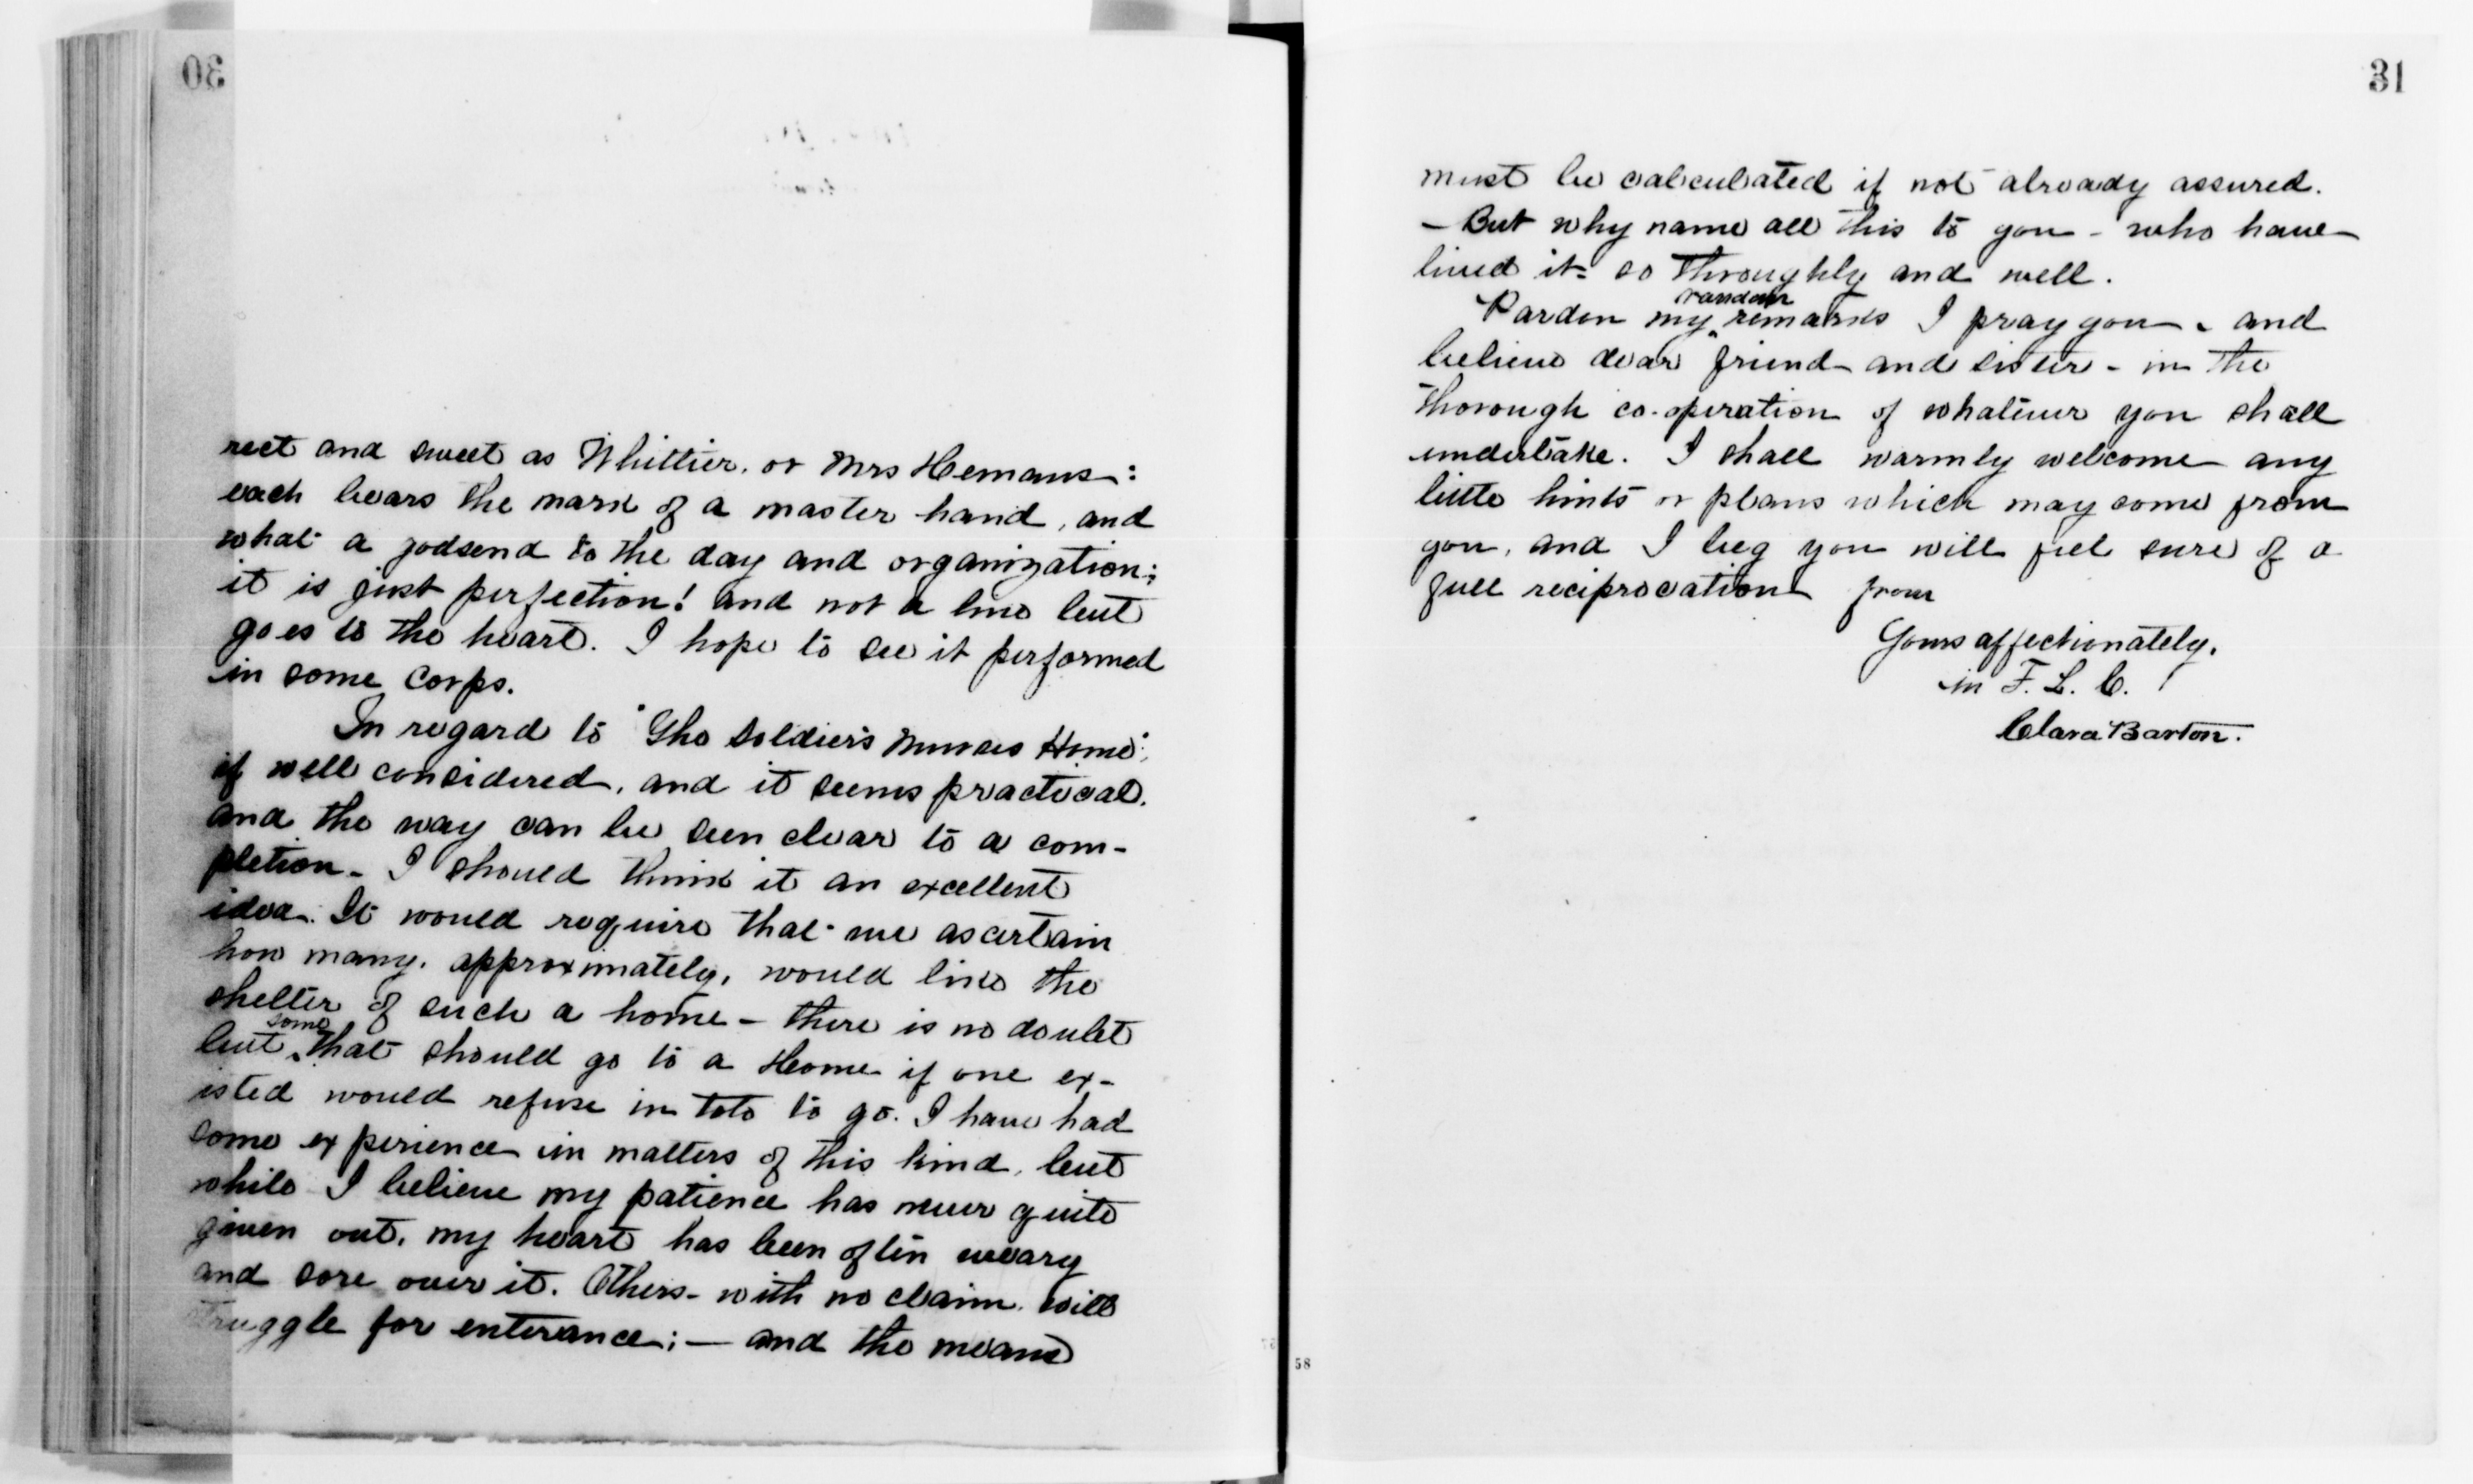 30
rect and sweet as Whittier, or Mrs Hemans:
each bears the mark of a master hand, and
what a godsend to the day and organization:
it is just perfection! and not a line but
goes to the heart. I hope to see it performed
in some Corps.
In regard to "The Soldiers Nurses Home",
if well considered, and it seems practical.
and the way can be seen clear to a com-
pletion - I should think it an excellent
idea. It would require that we ascertain
how many, approximately, would like the
shelter of such a home - there is no doubt
some
but ‸ that should go to a Home if one ex-
isted would refuse in toto to go. I have had
some experience in matters of this kind, but
while I believe my patience has never quite
given out, my heart has been often weary
and sore over it. Others - with no claim, will
struggle for enterance; — and the means
58
31
must be calculated if not already assured.
- But why name all this to you - who have
lived it - so throughly and well.
random
Pardon my ‸ remarks I pray you - and
believe dear friend and sister - in the
thorough co-operation of whatever you shall
undertake. I shall warmly welcome any
little hints or plans which may come from
you, and I beg you will feel sure of a
full reciprocation from
Yours affectionately,
in F. L. C. !
Clara Barton.